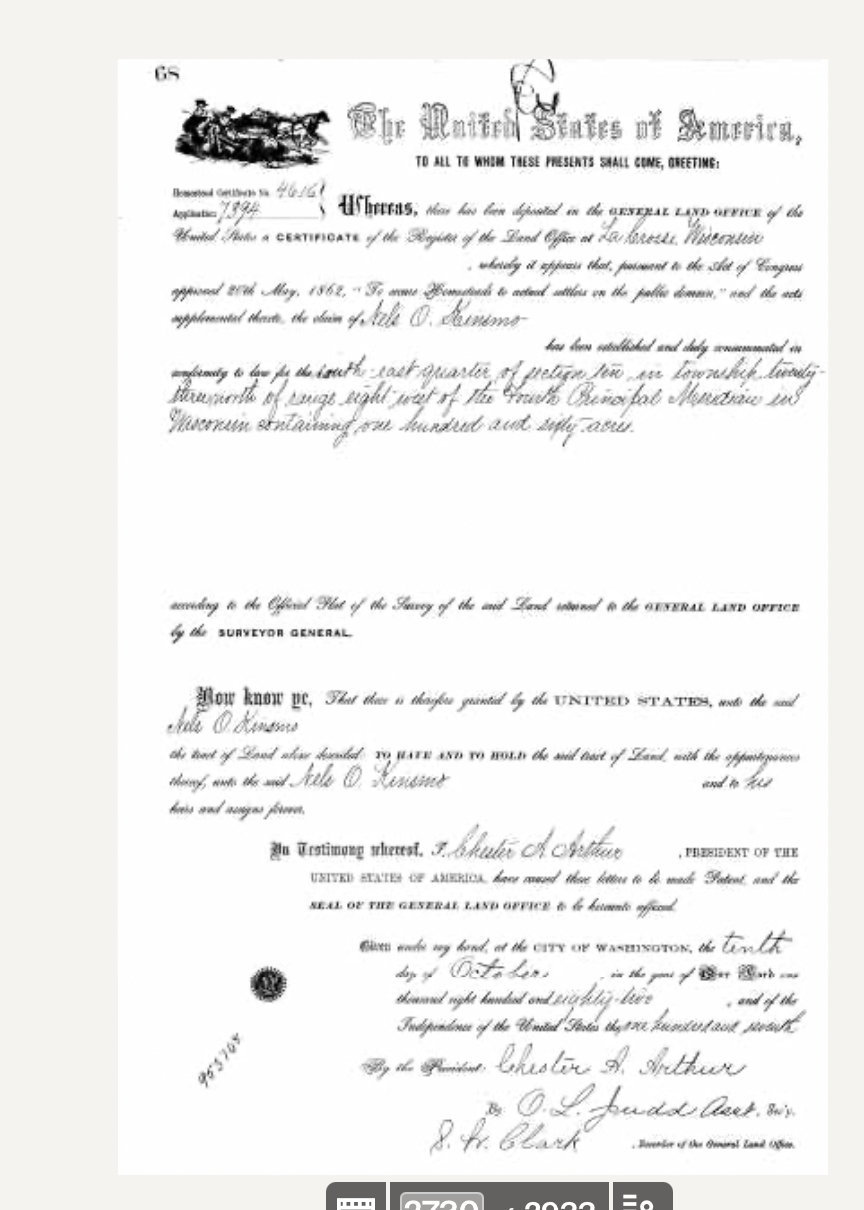 68
The United States of America,
TO ALL TO WHOM THESE PRESENTS SHALL COME, GREETING:
Homestead Certificate No. 4616
Application 7394
Whereas, there has been deposited in the GENERAL LAND OFFICE of the
United States a CERTIFICATE of the Register of the Land Office at La Crosse Wisconsin
, whereby it appears that, pursuant to the Act of Congress
approved 20th May, 1862, "To secure Homesteads to actual settlers on the public domain," and the acts
supplemental thereto, the claim of Nels O. Kinsmo
has been established and duly consummated in
conformity to law for the south east quarter of section ten in township twenty-
three north of range eight west of the Fourth Principal Meridian in
Wisconsin containing one hundred and sixty acres.
according to the Official Plat of the Survey of the said Land returned to the GENERAL LAND OFFICE
by the SURVEYOR GENERAL.
Now know ye, That there is therefore granted by the UNITED STATES, unto the said
Nels O. Kinsmo
the tract of Land above described: TO HAVE AND TO HOLD the said tract of Land, with the appurtenances
thereof, unto the said Nels O. Kinsmo and to his
heirs and assigns forever.
In Testimony whereof, I, Chester A. Arthur , PRESIDENT OF THE
UNITED STATES OF AMERICA, have caused these letters to be made Patent, and the
SEAL OF THE GENERAL LAND OFFICE to be hereunto affixed.
Given under my hand, at the CITY OF WASHINGTON, the tenth
day of October , in the year of Our Lord one
thousand eight hundred and eighty-two , and of the
Independence of the United States the one hundred and seventh
By the President: Chester A. Arthur
By O. L. Judd Asst. Sec'y.
S. W. Clark , Recorder of the General Land Office.